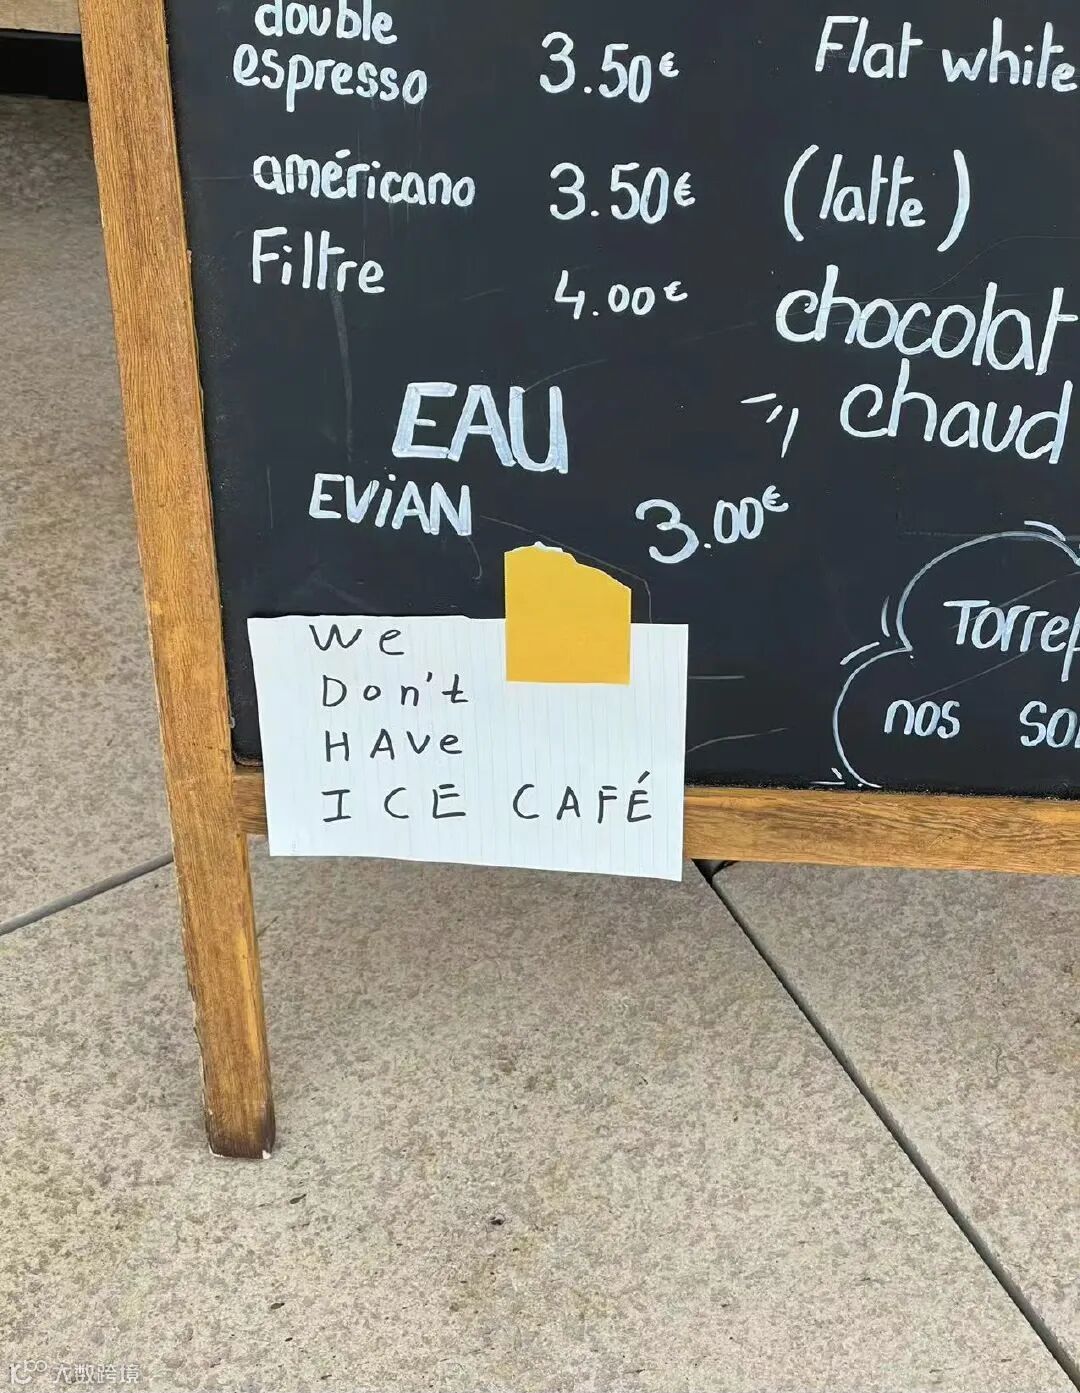 double
espresso 3.50€
américano 3.50€
Filtre 4.00€
EAU
EViAN 3.00€
Flat white
(latte)
chocolat
chaud
nos
We
Don't
HAve
ICE CAFÉ
大数跨境